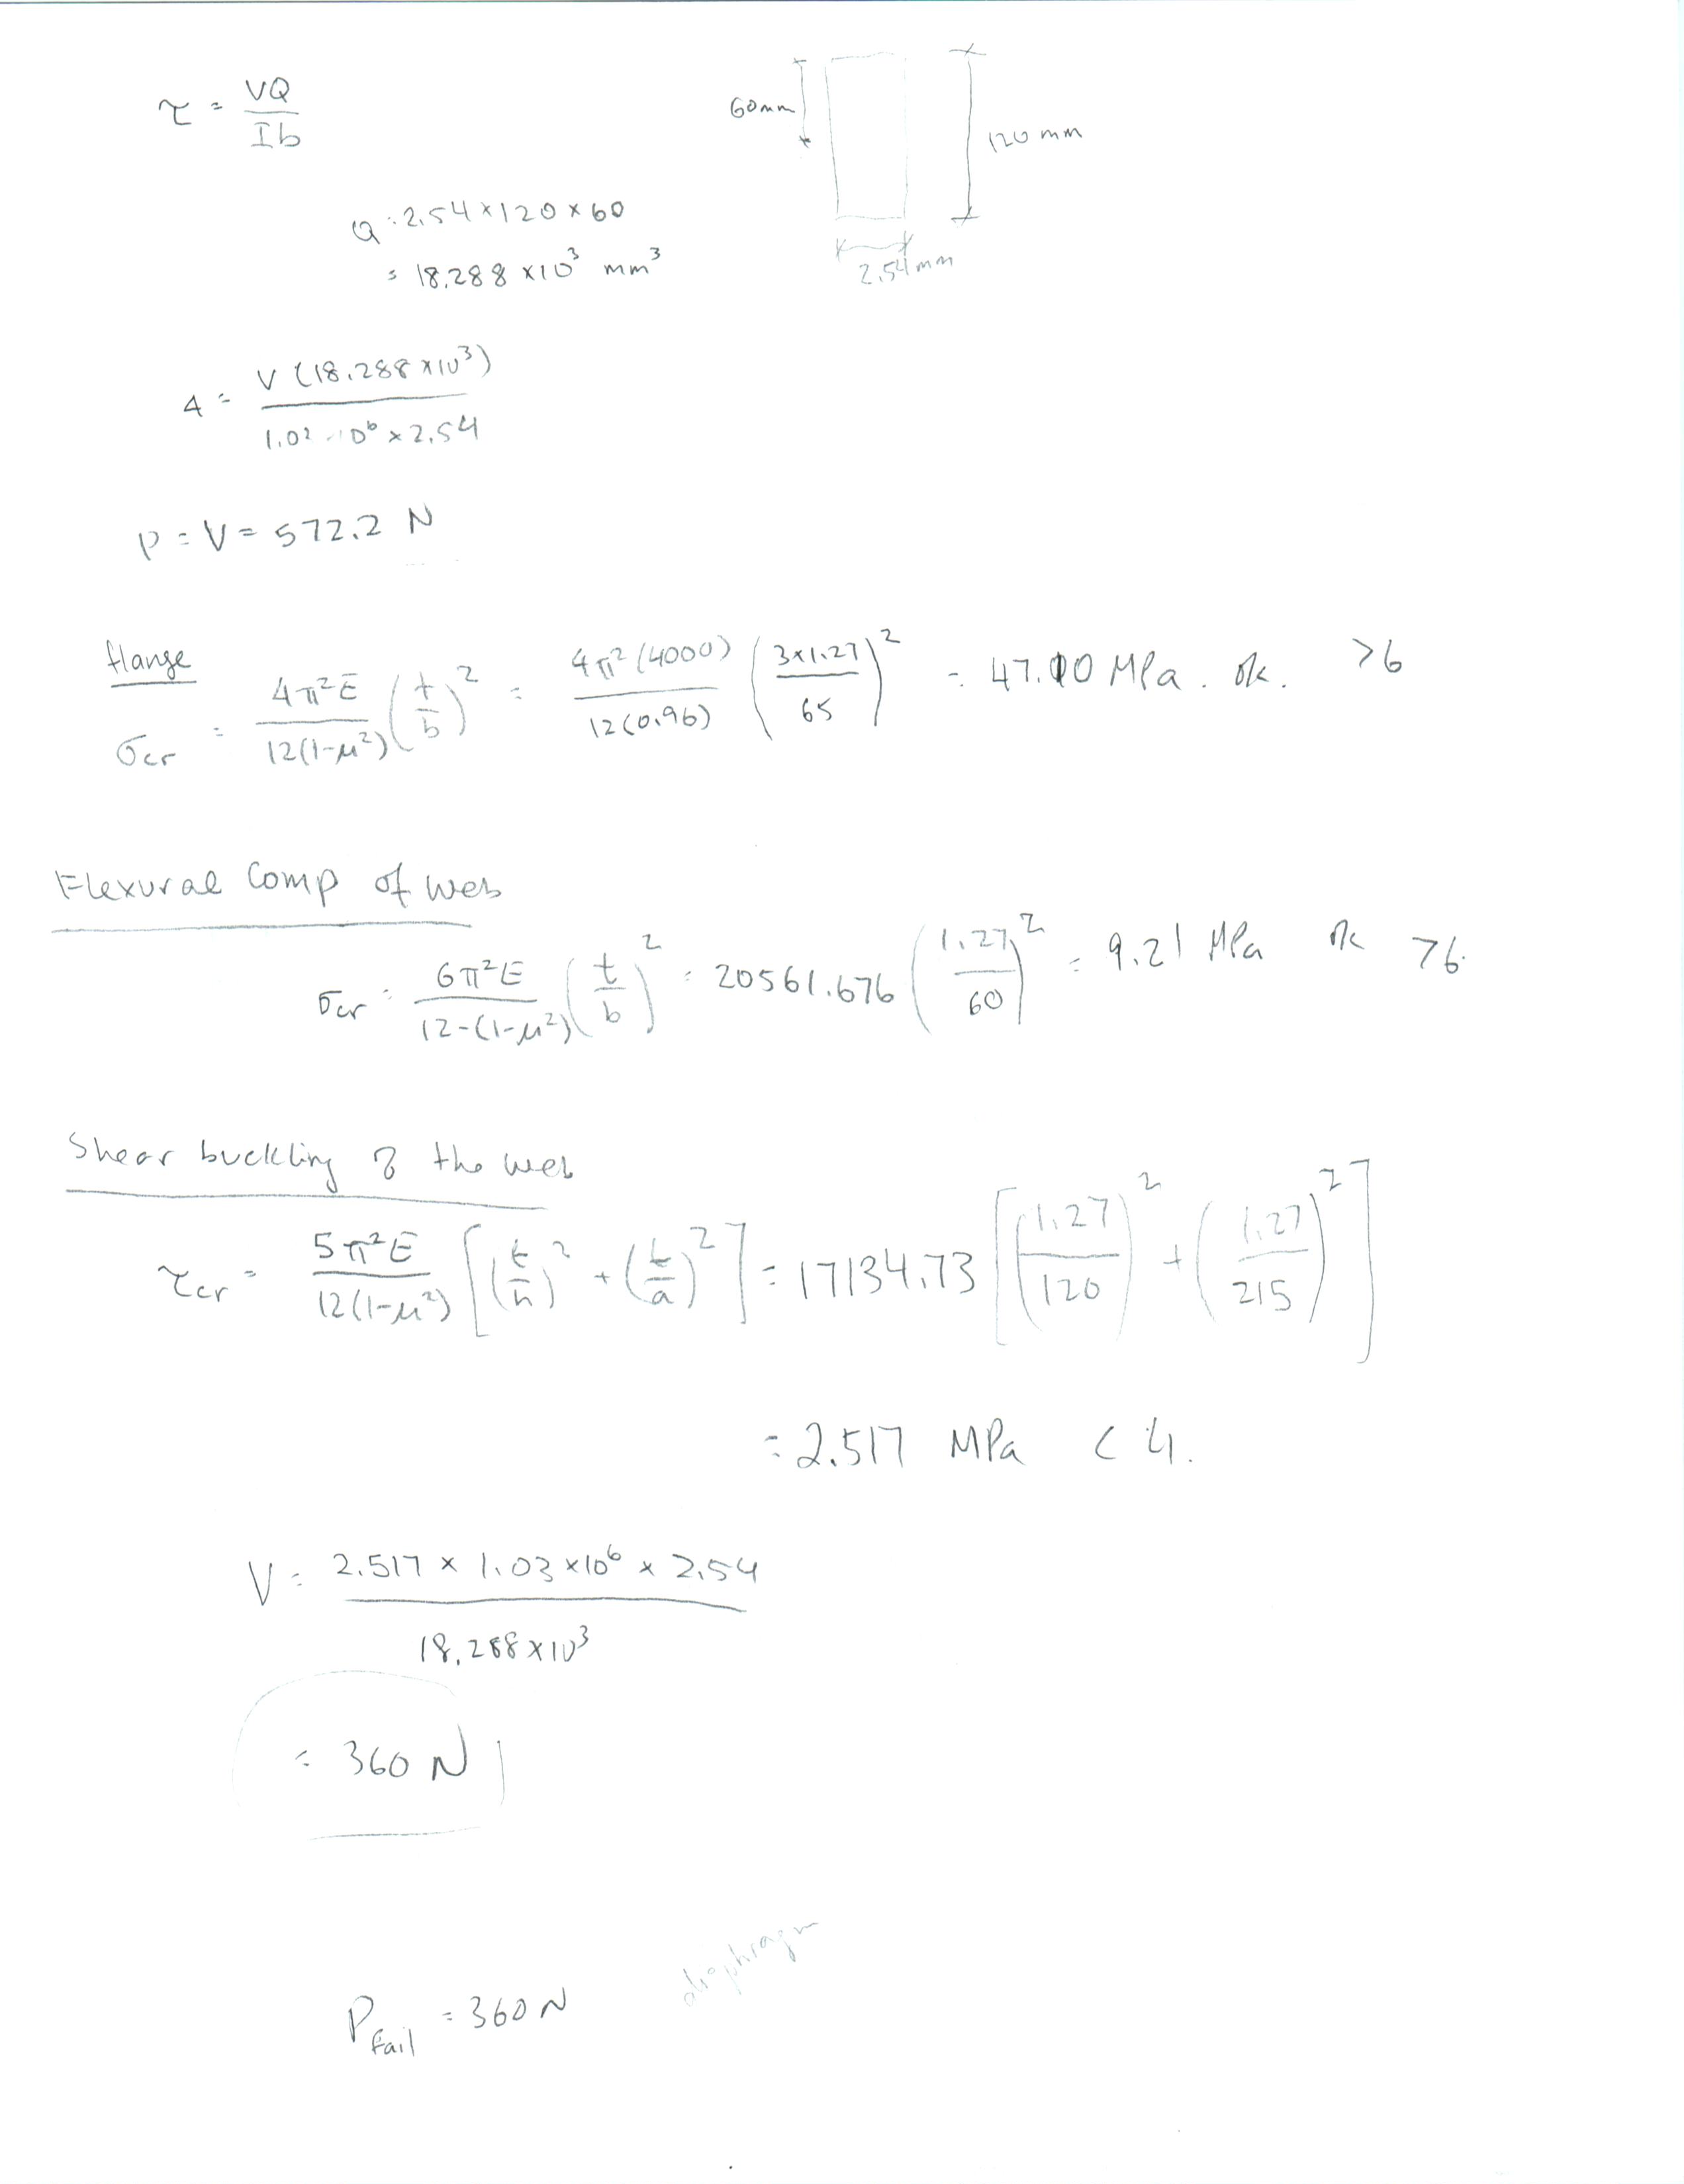 τ = VQ / Ib
60mm
120 mm
2.54mm
Q = 2.54 × 120 × 60
= 18.288 × 10³ mm³
4 = V (18.288 × 10³) / 1.02 · 10⁶ × 2.54
P = V = 572.2 N
flange
σcr = 4π²E / 12(1-μ²) (t/b)² = 4π²(4000) / 12(0.96) (3×1.27 / 65)² = 47.10 MPa. ok. >6
Flexural Comp of web
σcr = 6π²E / 12-(1-μ²) (t/b)² = 20561.676 (1.27 / 60)² = 9.21 MPa ok >6.
Shear buckling of the web
τcr = 5π²E / 12(1-μ²) [(t/h)² + (t/a)²] = 17134.73 [(1.27 / 120)² + (1.27 / 215)²]
= 2.517 MPa < 4.
V = 2.517 × 1.03 × 10⁶ × 2.54 / 18.288 × 10³
= 360 N
diaphragm
P fail = 360 N